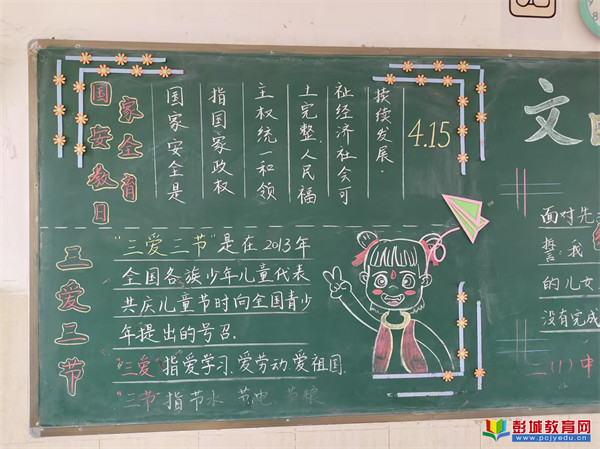 国家安全教育日
国家安全是
指国家政权
主权统一和领
土完整.人民福
祉经济社会可
持续发展.
4.15
三爱三节
"三爱三节"是在2013年
全国各族少年儿童代表
共庆儿童节时向全国青少
年提出的号召.
"三爱"指爱学习.爱劳动.爱祖国.
"三节"指节水 节电 节粮
文
面对先
誓:我
的儿女
没有完成
二(1)中
彭城教育网
www.pcjyedu.cn